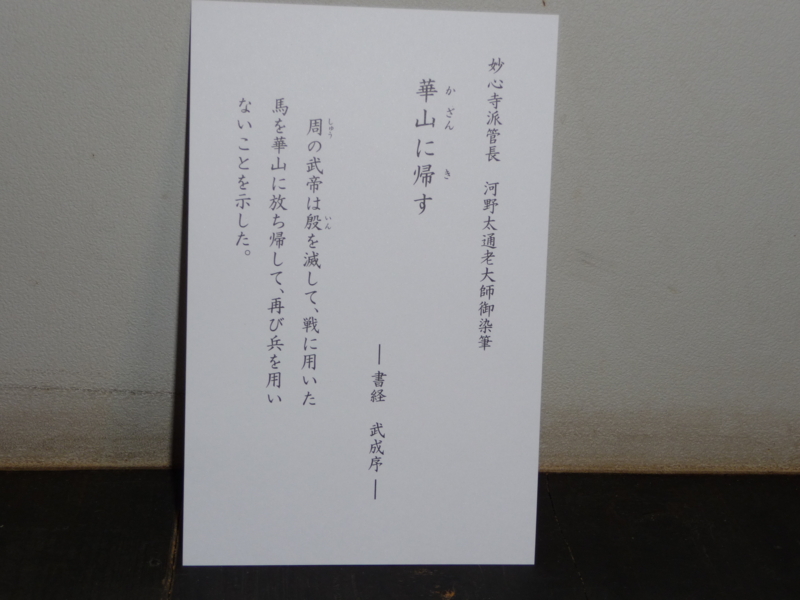 妙心寺派管長　河野太通老大師御染筆
華山に帰す
かざん　き
―書経　武成序―
周の武帝は殷を滅して、戦に用いた
しゅう　いん
馬を華山に放ち帰して、再び兵を用い
ないことを示した。